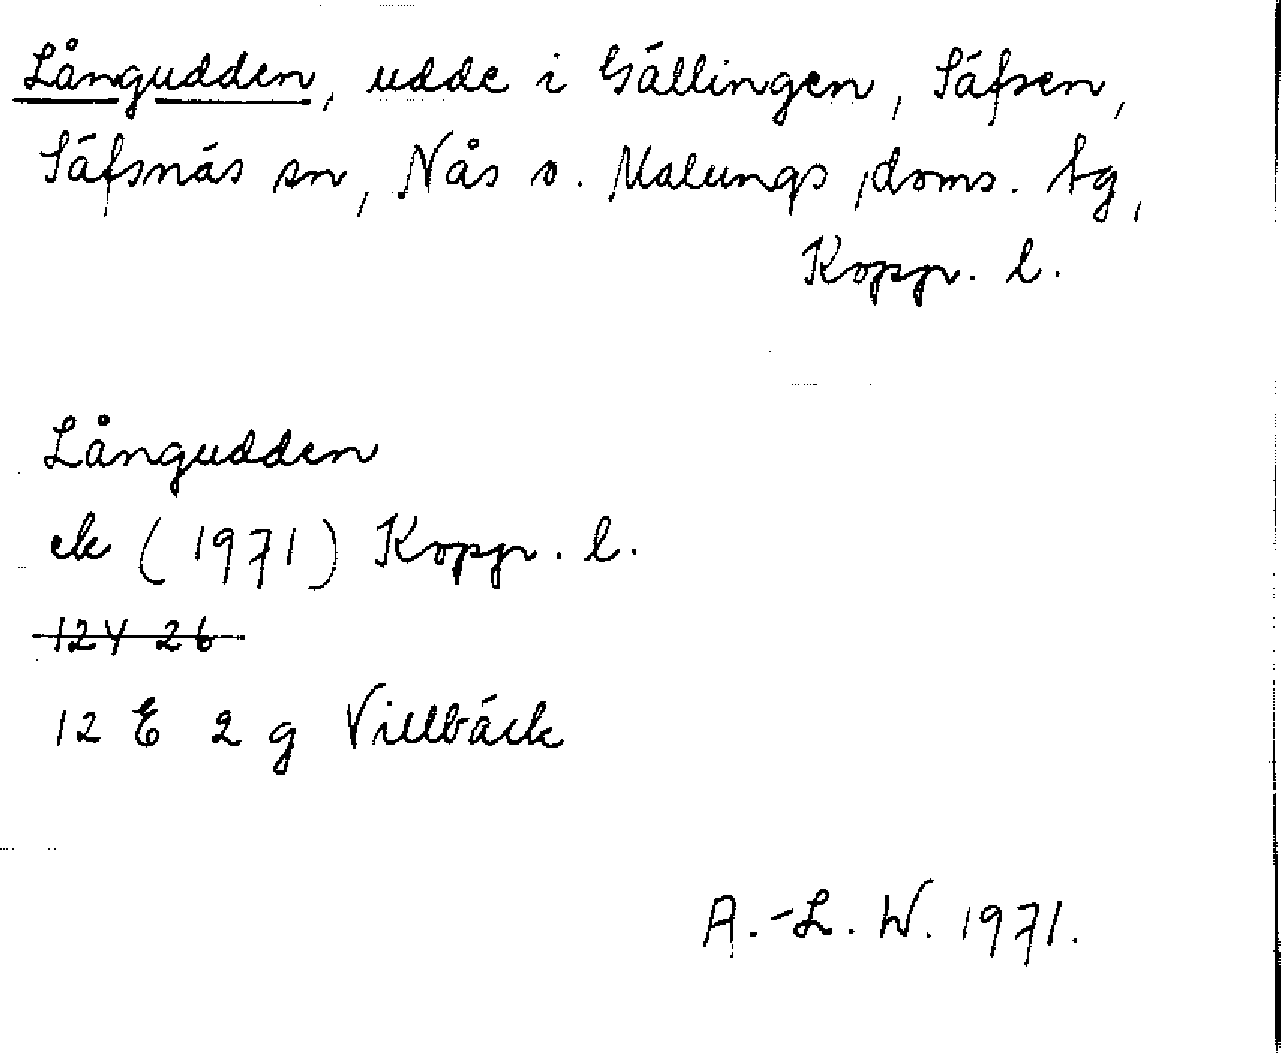 Långudden, udde i Gällingen, Säfsen,
Säfsnäs sn, Nås o. Malungs doms. tg,
Kopp. l.
Långudden
ek (1971) Kopp. l.
12Y 26
12 E 2 g Villbäck
A.-L. W. 1971.